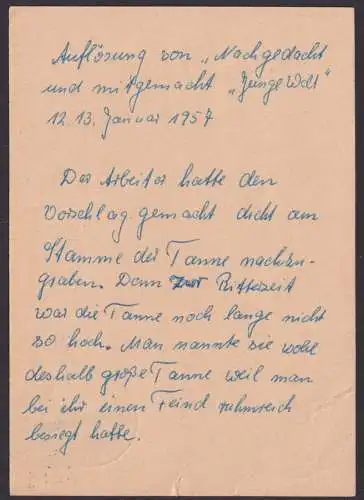 Auflösung von „Nachgedacht
und mitgemacht „Junge Welt"
12. 13. Januar 1957
Der Arbeiter hatte den
Vorschlag gemacht dicht am
Stamme der Tanne nachzu-
graben. Denn zur Ritterzeit
war die Tanne noch lange nicht
so hoch. Man nannte sie wohl
deshalb große Tanne weil man
bei ihr einen Feind ruhmreich
besiegt hatte.